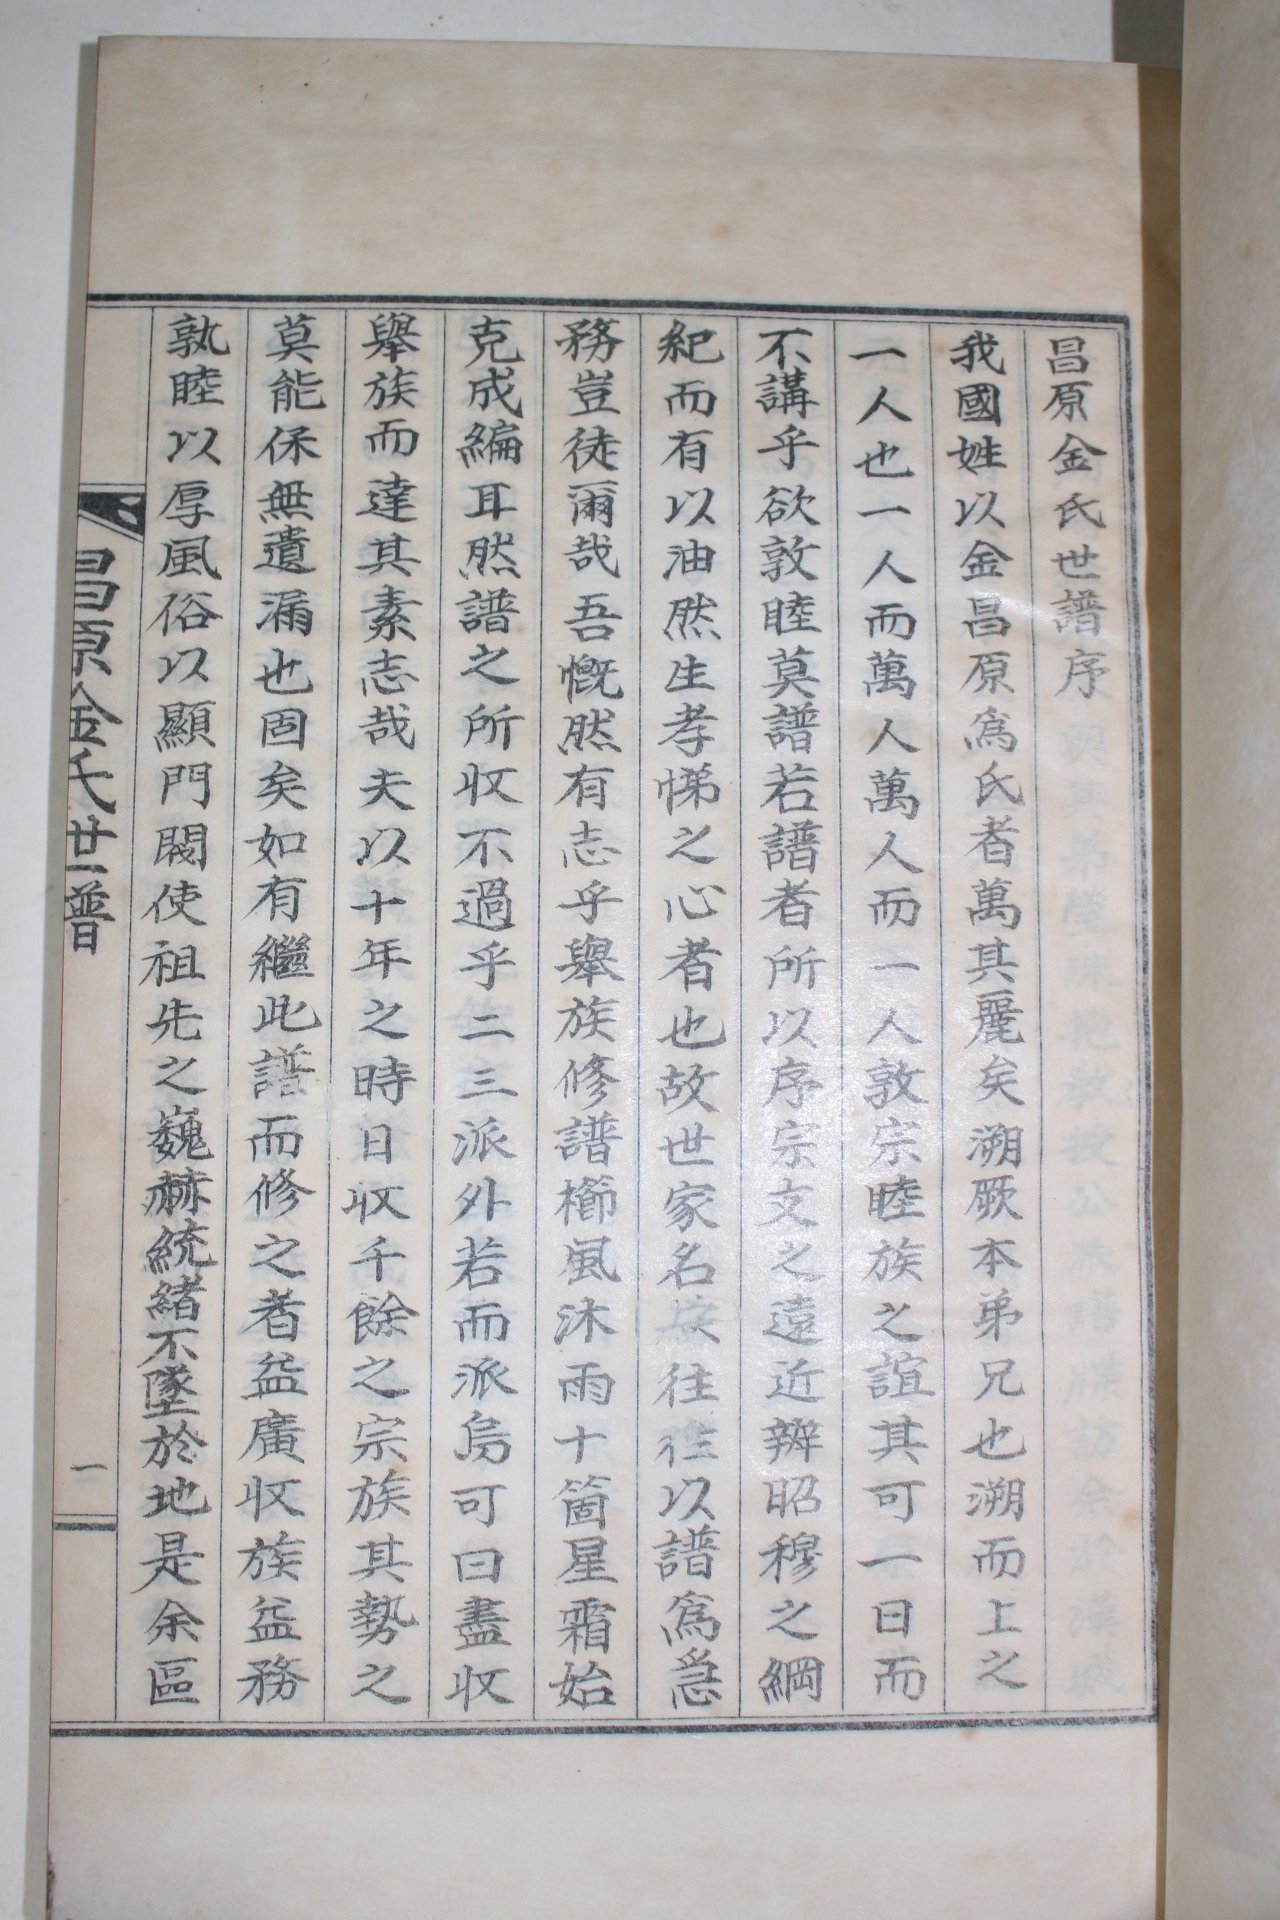 昌原金氏世譜序
我國姓以金昌原爲氏者萬其麗矣溯厥本弟兄也溯而上之
一人也一人而萬人萬人而一人敦宗睦族之誼其可一日而
不講乎欲敦睦莫譜若譜者所以序宗支之遠近辨昭穆之綱
紀而有以油然生孝悌之心者也故世家名族往往以譜爲急
務豈徒爾哉吾慨然有志乎舉族修譜櫛風沐雨十箇星霜始
克成編耳然譜之所収不過乎二三派外若而派烏可曰盡収
舉族而達其素志哉夫以十年之時日収千餘之宗族其勢之
莫能保無遺漏也固矣如有繼此譜而修之者益廣収族益務
孰睦以厚風俗以顯門閥使祖先之巍赫統緖不墜於地是余區
昌原金氏世譜
一